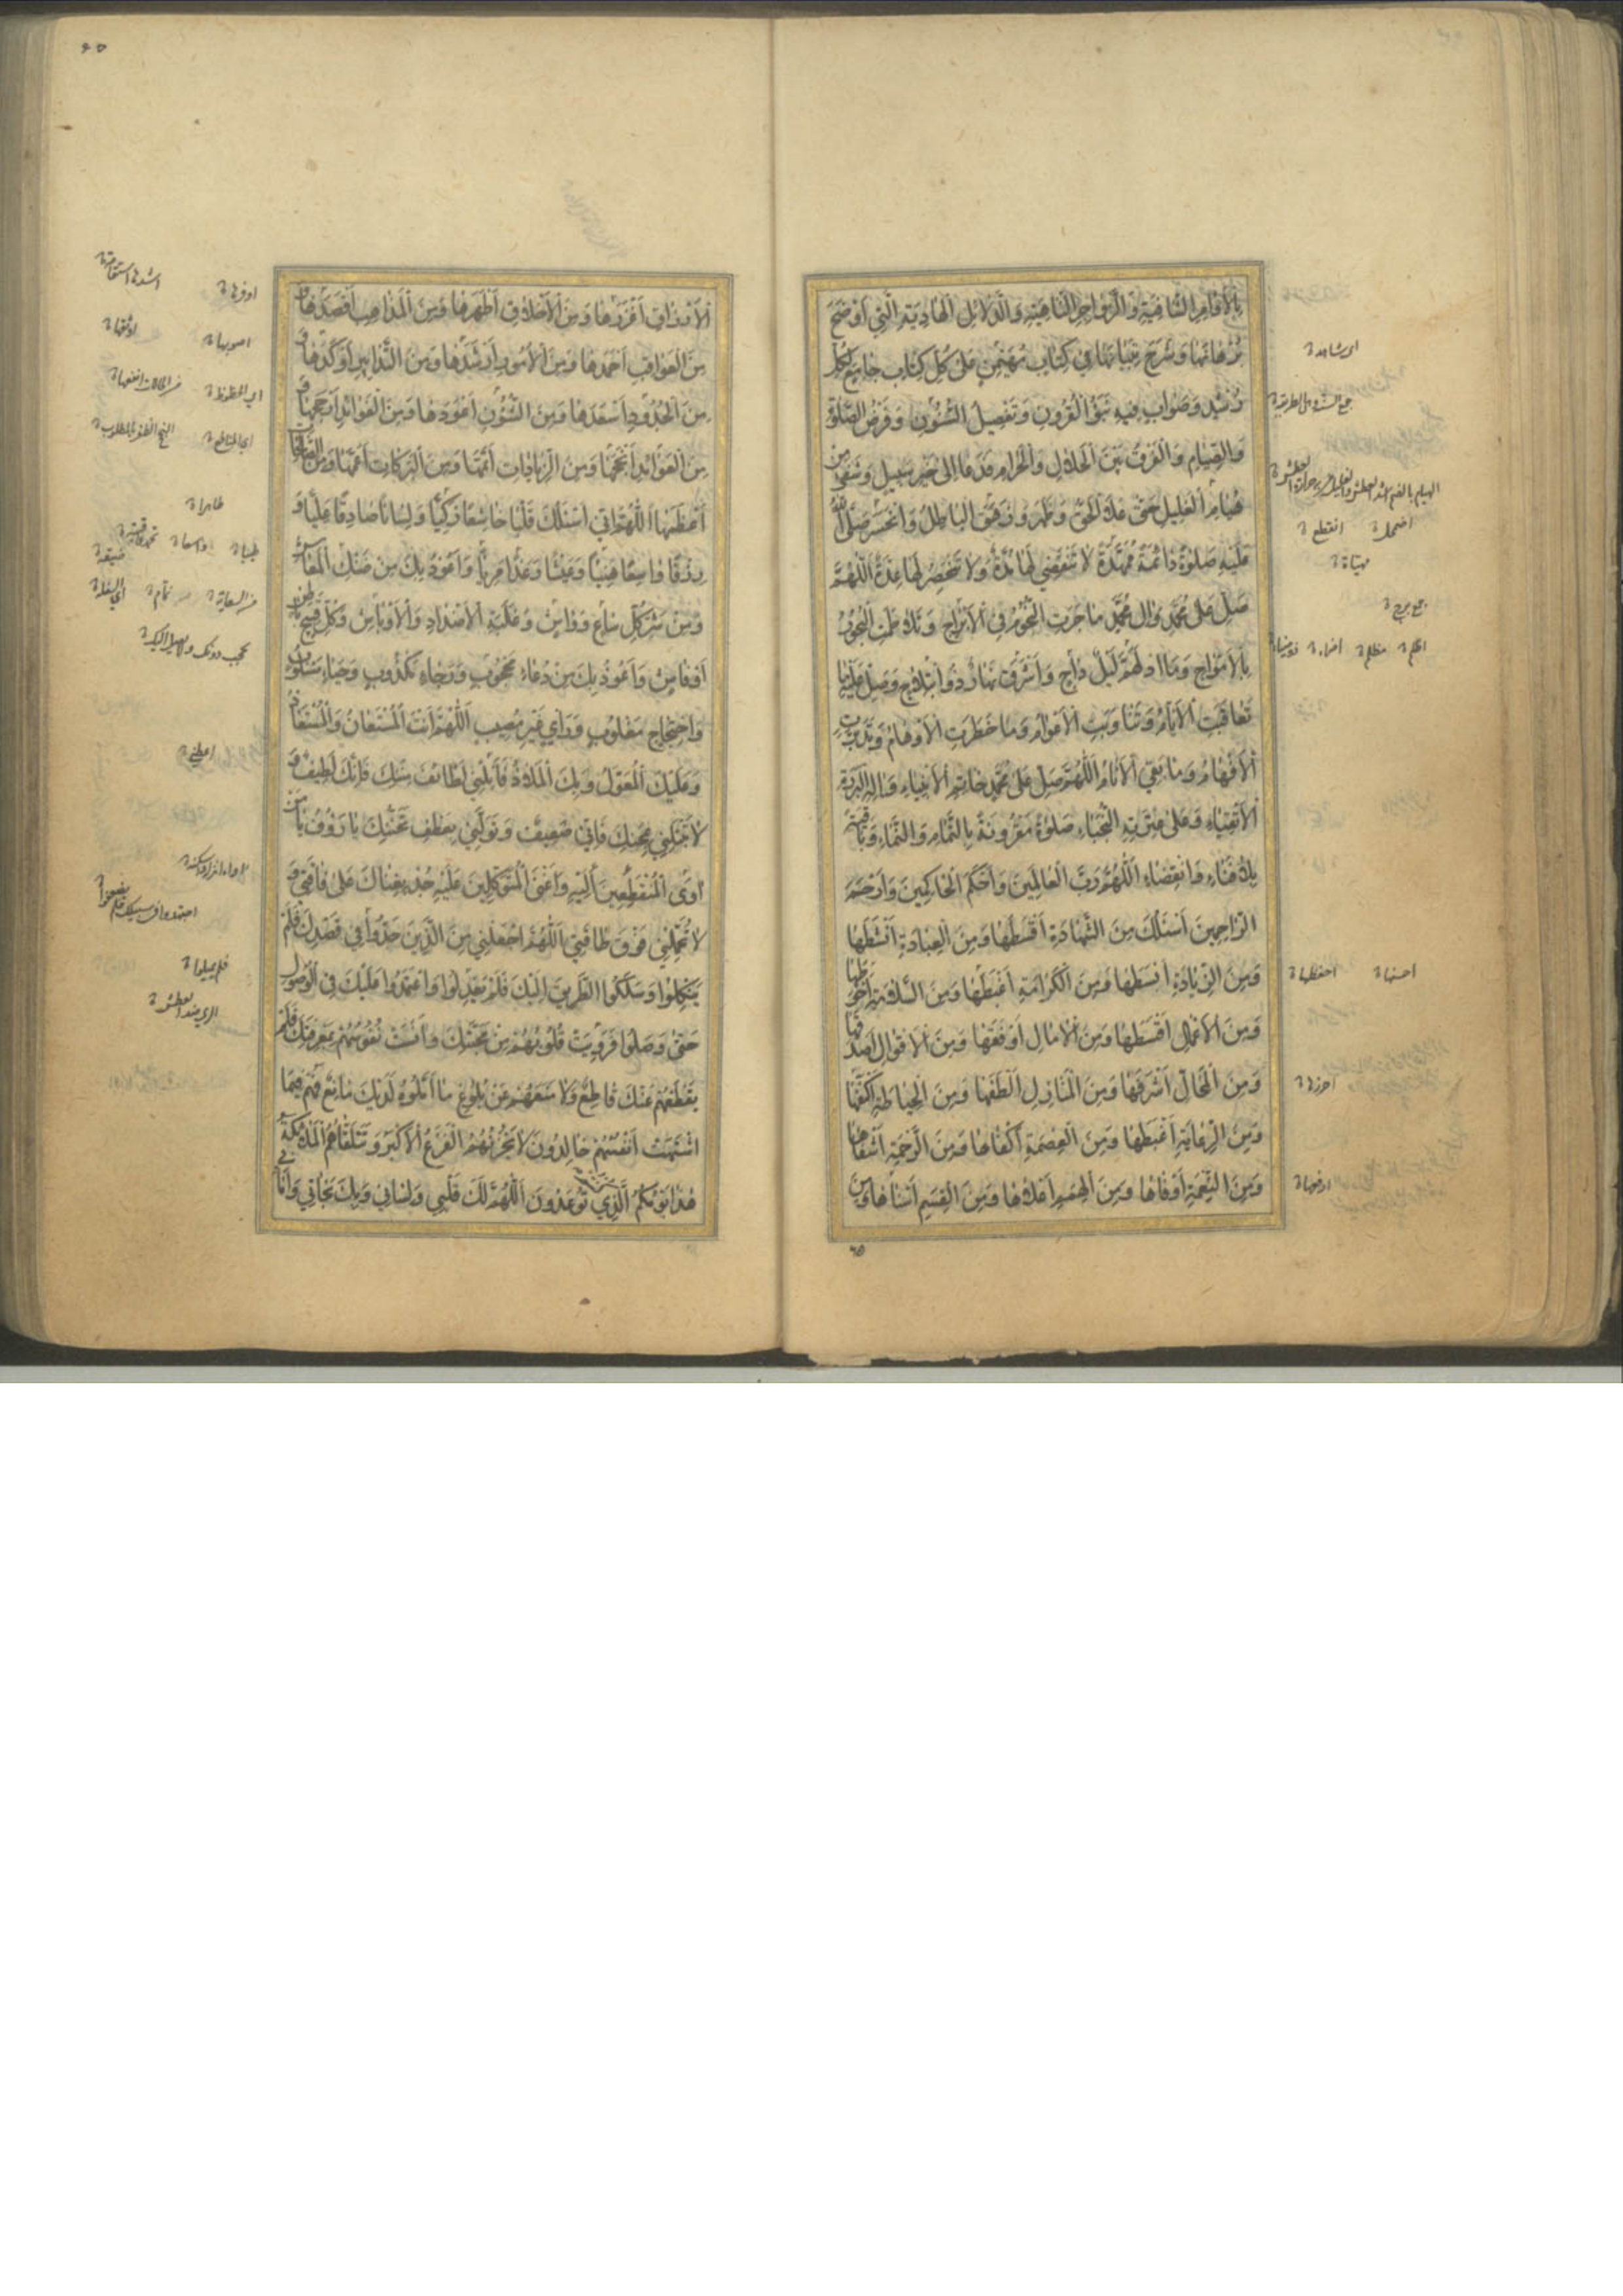 بِالْأَوَامِرِ الشَّافِيَةِ وَالزَّوَاجِرِ النَّاهِيَةِ وَالدَّلَائِلِ الْهَادِيَةِ الَّتِي أَوْضَحَ
بُرْهَانَهَا وَشَرَحَ بَيَانَهَا فِي كِتَابٍ مُهَيْمِنٍ عَلَى كُلِّ كِتَابٍ جَامِعٍ لِكُلِّ
رُشْدٍ وَصَوَابٍ فِيهِ نَبَؤُ الْقُرُونِ وَتَفْصِيلُ الشُّؤُنِ وَفَرْضُ الصَّلٰوةِ
وَالصِّيَامِ وَالْفَرْقُ بَيْنَ الْحَلَالِ وَالْحَرَامِ فَدَعَا اِلٰى خَيْرِ سَبِيلٍ وَشَفٰى مِنْ
هُيَامِ الْغَلِيلِ حَتّٰى عَلَا الْحَقُّ وَظَهَرَ وَزَهَقَ الْبَاطِلُ وَانْحَسَرَ صَلَّى اللهُ
عَلَيْهِ صَلٰوةً دَائِمَةً مُمَهَّدَةً لَا تَنْقَضِي لَهَا مُدَّةٌ وَلَا تَنْحَصِرُ لَهَا عِدَّةٌ اَللّٰهُمَّ
صَلِّ عَلٰى مُحَمَّدٍ وَاٰلِ مُحَمَّدٍ مَا جَرَتِ النُّجُومُ فِي الْأَبْرَاجِ وَتَلَاطَمَتِ الْبُحُورُ
بِالْأَمْوَاجِ وَمَا ادْلَهَمَّ لَيْلٌ دَاجٍ وَأَشْرَقَ نَهَارٌ ذُو ابْتِلَاجٍ وَصَلِّ عَلَيْهِ مَا
تَعَاقَبَتِ الْأَيَّامُ وَتَنَاوَبَتِ الْأَعْوَامُ وَمَا خَطَرَتِ الْأَوْهَامُ وَتَدَبَّرَتِ
الْأَفْهَامُ وَمَا بَقِيَ الْأَنَامُ اَللّٰهُمَّ صَلِّ عَلٰى مُحَمَّدٍ خَاتِمِ الْأَنْبِيَاءِ وَاٰلِهِ الْبَرَرَةِ
الْأَتْقِيَاءِ وَعَلٰى عِتْرَتِهِ النُّجَبَاءِ صَلٰوةً مَقْرُونَةً بِالتَّمَامِ وَالنَّمَاءِ وَبَاقِيَةً
بِلَا فَنَاءٍ وَانْقِضَاءٍ اَللّٰهُمَّ رَبَّ الْعَالَمِينَ وَأَحْكَمَ الْحَاكِمِينَ وَأَرْحَمَ
الرَّاحِمِينَ أَسْئَلُكَ مِنَ الشَّهَادَةِ أَقْسَطَهَا وَمِنَ الْعِبَادَةِ أَنْشَطَهَا
وَمِنَ الزِّيَادَةِ أَبْسَطَهَا وَمِنَ الْكَرَامَةِ أَغْبَطَهَا وَمِنَ السَّلَامَةِ أَحْوَطَهَا
وَمِنَ الْأَعْمَالِ أَقْسَطَهَا وَمِنَ الْاٰمَالِ أَوْفَقَهَا وَمِنَ الْأَقْوَالِ أَصْدَقَهَا
وَمِنَ الْمَحَالِّ أَشْرَفَهَا وَمِنَ الْمَنَازِلِ أَلْطَفَهَا وَمِنَ الْحِيَاطَةِ أَكْنَفَهَا
وَمِنَ الرِّعَايَةِ أَغْبَطَهَا وَمِنَ الْعِصْمَةِ أَكْفَاهَا وَمِنَ الرَّحْمَةِ أَشْفَاهَا
وَمِنَ النِّعْمَةِ أَوْفَاهَا وَمِنَ الْهِمَمِ أَعْلَاهَا وَمِنَ الْقِسَمِ أَسْنَاهَا وَمِنَ
اى شاهده
اضمحل انقطع
مهيأة
جمع برج
اظلم مظلم اضاء ذو ضياء
احسنها احفظها
احرزها
ارفعها
الْأَرْزَاقِ أَغْزَرَهَا وَمِنَ الْأَخْلَاقِ أَطْهَرَهَا وَمِنَ الْمَذَاهِبِ أَقْصَدَهَا وَ
مِنَ الْعَوَاقِبِ أَحْمَدَهَا وَمِنَ الْأُمُورِ أَرْشَدَهَا وَمِنَ التَّدَابِيرِ أَوْكَدَهَا وَ
مِنَ الْحُدُودِ أَسْعَدَهَا وَمِنَ الشُّؤُنِ أَعْوَدَهَا وَمِنَ الْفَوَائِدِ أَرْجَحَهَا وَ
مِنَ الْعَوَائِدِ أَنْجَحَهَا وَمِنَ الزِّيَادَاتِ أَتَمَّهَا وَمِنَ الْبَرَكَاتِ أَعَمَّهَا وَمِنَ الصَّالِحَاتِ
أَعْظَمَهَا اَللّٰهُمَّ اِنِّي أَسْئَلُكَ قَلْبًا خَاشِعًا زَكِيًّا وَلِسَانًا صَادِقًا عَلِيًّا وَ
رِزْقًا وَاسِعًا هَنِيئًا وَعَيْشًا رَغَدًا مَرِيًّا وَأَعُوذُ بِكَ مِنْ ضَنْكِ الْمَعَاشِ
وَمِنْ شَرِّ كُلِّ سَاعٍ وَوَاشٍ وَغَلَبَةِ الْأَضْدَادِ وَالْأَوْبَاشِ وَكُلِّ قَبِيحٍ بَاطِنٍ
أَوْ فَاشٍ وَأَعُوذُ بِكَ مِنْ دُعَاءٍ مَحْجُوبٍ وَرَجَاءٍ مَكْذُوبٍ وَحَيَاءٍ مَسْلُوبٍ
وَاحْتِجَاجٍ مَغْلُوبٍ وَرَأْيٍ غَيْرِ مُصِيبٍ اَللّٰهُمَّ أَنْتَ الْمُسْتَعَانُ وَالْمُسْتَعَاذُ
وَعَلَيْكَ الْمُعَوَّلُ وَبِكَ الْمَلَاذُ فَأَنِلْنِي لَطَائِفَ مِنَنِكَ فَاِنَّكَ لَطِيفٌ وَ
لَا تَبْتَلِنِي بِمِحَنِكَ فَاِنِّي ضَعِيفٌ وَتَوَلَّنِي بِعَطْفِ تَحَنُّنِكَ يَا رَؤُفُ يَا مَنْ
اٰوَى الْمُنْقَطِعِينَ اِلَيْهِ وَأَغْنَى الْمُتَوَكِّلِينَ عَلَيْهِ جُدْ بِغِنَاكَ عَلٰى فَاقَتِي وَ
لَا تُحَمِّلْنِي فَوْقَ طَاقَتِي اَللّٰهُمَّ اجْعَلْنِي مِنَ الَّذِينَ جَدُّوا فِي قَصْدِكَ فَلَمْ
يَنْكِلُوا وَسَلَكُوا الطَّرِيقَ اِلَيْكَ فَلَمْ يَعْدِلُوا وَاعْتَمَدُوا عَلَيْكَ فِي الْوُصُولِ
حَتّٰى وَصَلُوا فَرَوِيَتْ قُلُوبُهُمْ مِنْ مَحَبَّتِكَ وَأَنِسَتْ نُفُوسُهُمْ بِمَعْرِفَتِكَ فَلَمْ
يَقْطَعْهُمْ عَنْكَ قَاطِعٌ وَلَا مَنَعَهُمْ عَنْ بُلُوغِ مَا أَمَّلُوهُ لَدَيْكَ مَانِعٌ فَهُمْ فِيمَا
اشْتَهَتْ أَنْفُسُهُمْ خَالِدُونَ لَا يَحْزُنُهُمُ الْفَزَعُ الْأَكْبَرُ وَتَتَلَقَّاهُمُ الْمَلٰئِكَةُ
هٰذَا يَوْمُكُمُ الَّذِي كُنْتُمْ تُوعَدُونَ اَللّٰهُمَّ لَكَ قَلْبِي وَلِسَانِي وَبِكَ نَجَاتِي وَأَمَانِي
اوفرها اشدها استقامة
اصوبها اوثقها
طاهرا
اعطني
فلم يميلوا
الرى ضد العطش